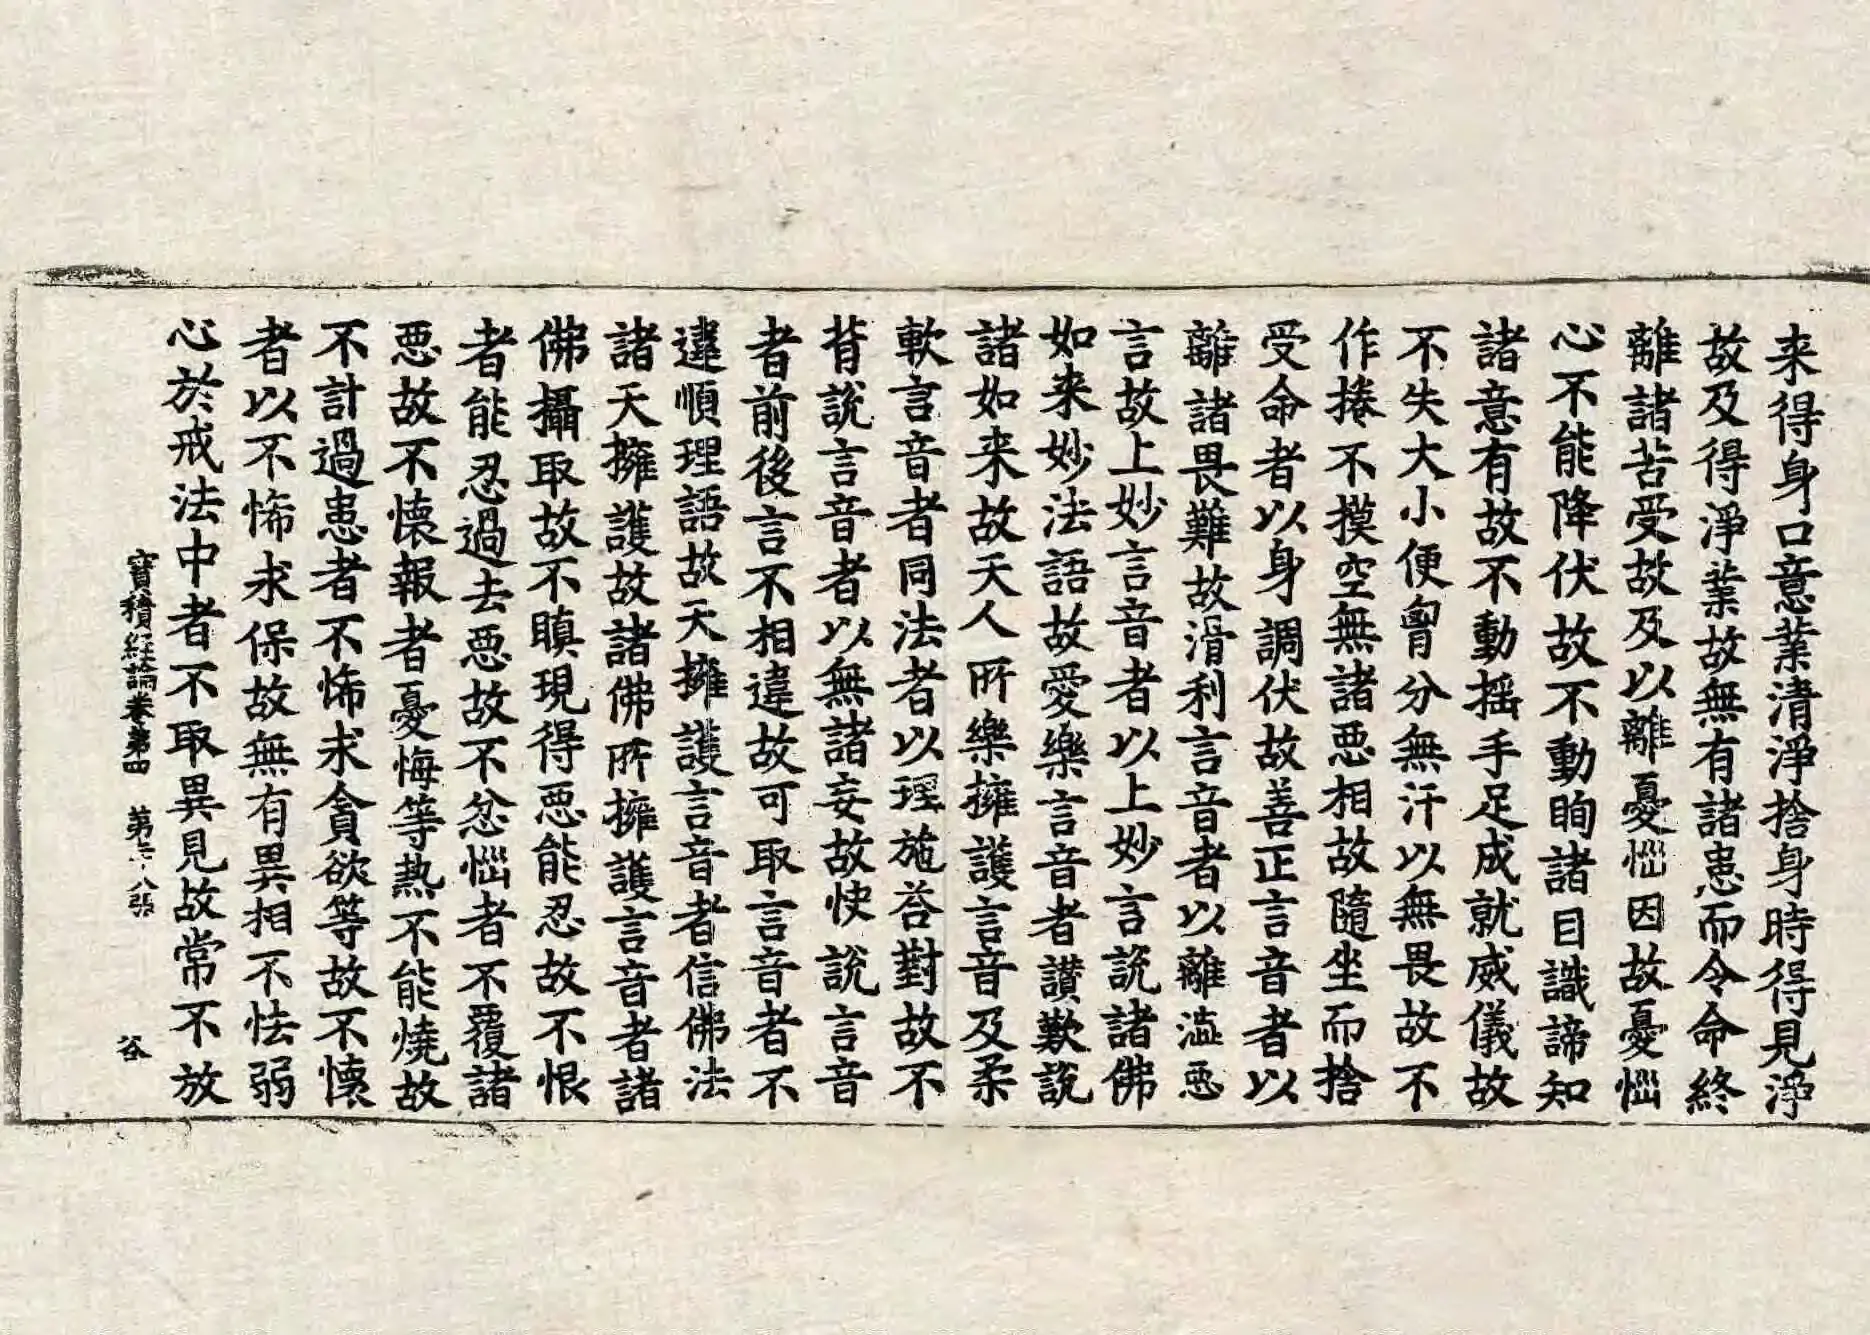 来得身口意業清淨捨身時得見淨
故及得淨業故無有諸患而令命終
離諸苦受故故及以離憂惱因故憂惱
心不能降伏故不動眴諸目識諦知
諸意有故不動摇手足成就威儀故
不失大小便𦚾分無汗以無畏故不
作捲不摸空無諸惡相故隨坐而捨
受命者以身調伏故善正言音者以
離諸畏難故滑利言音者以離澁惡
言故上妙言音者以上妙言說諸佛
如来妙法語故愛樂言音者讃歎說
諸如来故天人所樂擁護言音及柔
軟言音者同法者以理施荅對故不
背說言音者以無諸妄故快說言音
者前後言不相違故可取言音者不
違順理語故天擁護言音者信佛法
諸天擁護故諸佛所擁護言音者諸
佛攝取故不瞋現得惡能忍故不恨
者能忍過去惡故不忿惱者不覆諸
惡故不懷報者憂悔等熱不能燒故
不計過患者不怖求貪欲等故不懷
者以不怖求保故無有異相不怯弱
心於戒法中者不取異見故常不放
寶積經論卷第四 第 八張 谷